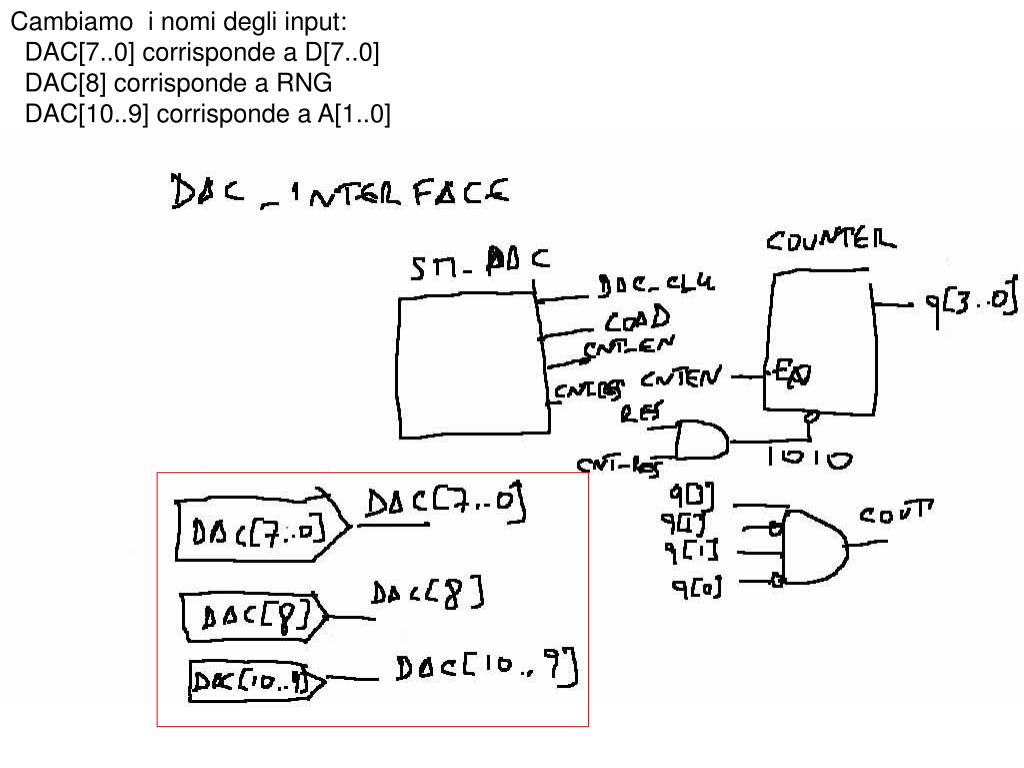 Cambiamo i nomi degli input:
DAC[7..0] corrisponde a D[7..0]
DAC[8] corrisponde a RNG
DAC[10..9] corrisponde a A[1..0]
DAC_INTERFACE
COUNTER
SM-DAC
DAC_CLK
q[3..0]
LOAD
CNT_EN
CNTEN
EN
CNTRES
RES
CNT-RES
1010
DAC[7..0]
DAC[7..0]
q[3]
COUT
q[1]
q[0]
DAC[8]
DAC[8]
DAC[10..9]
DAC[10..9]